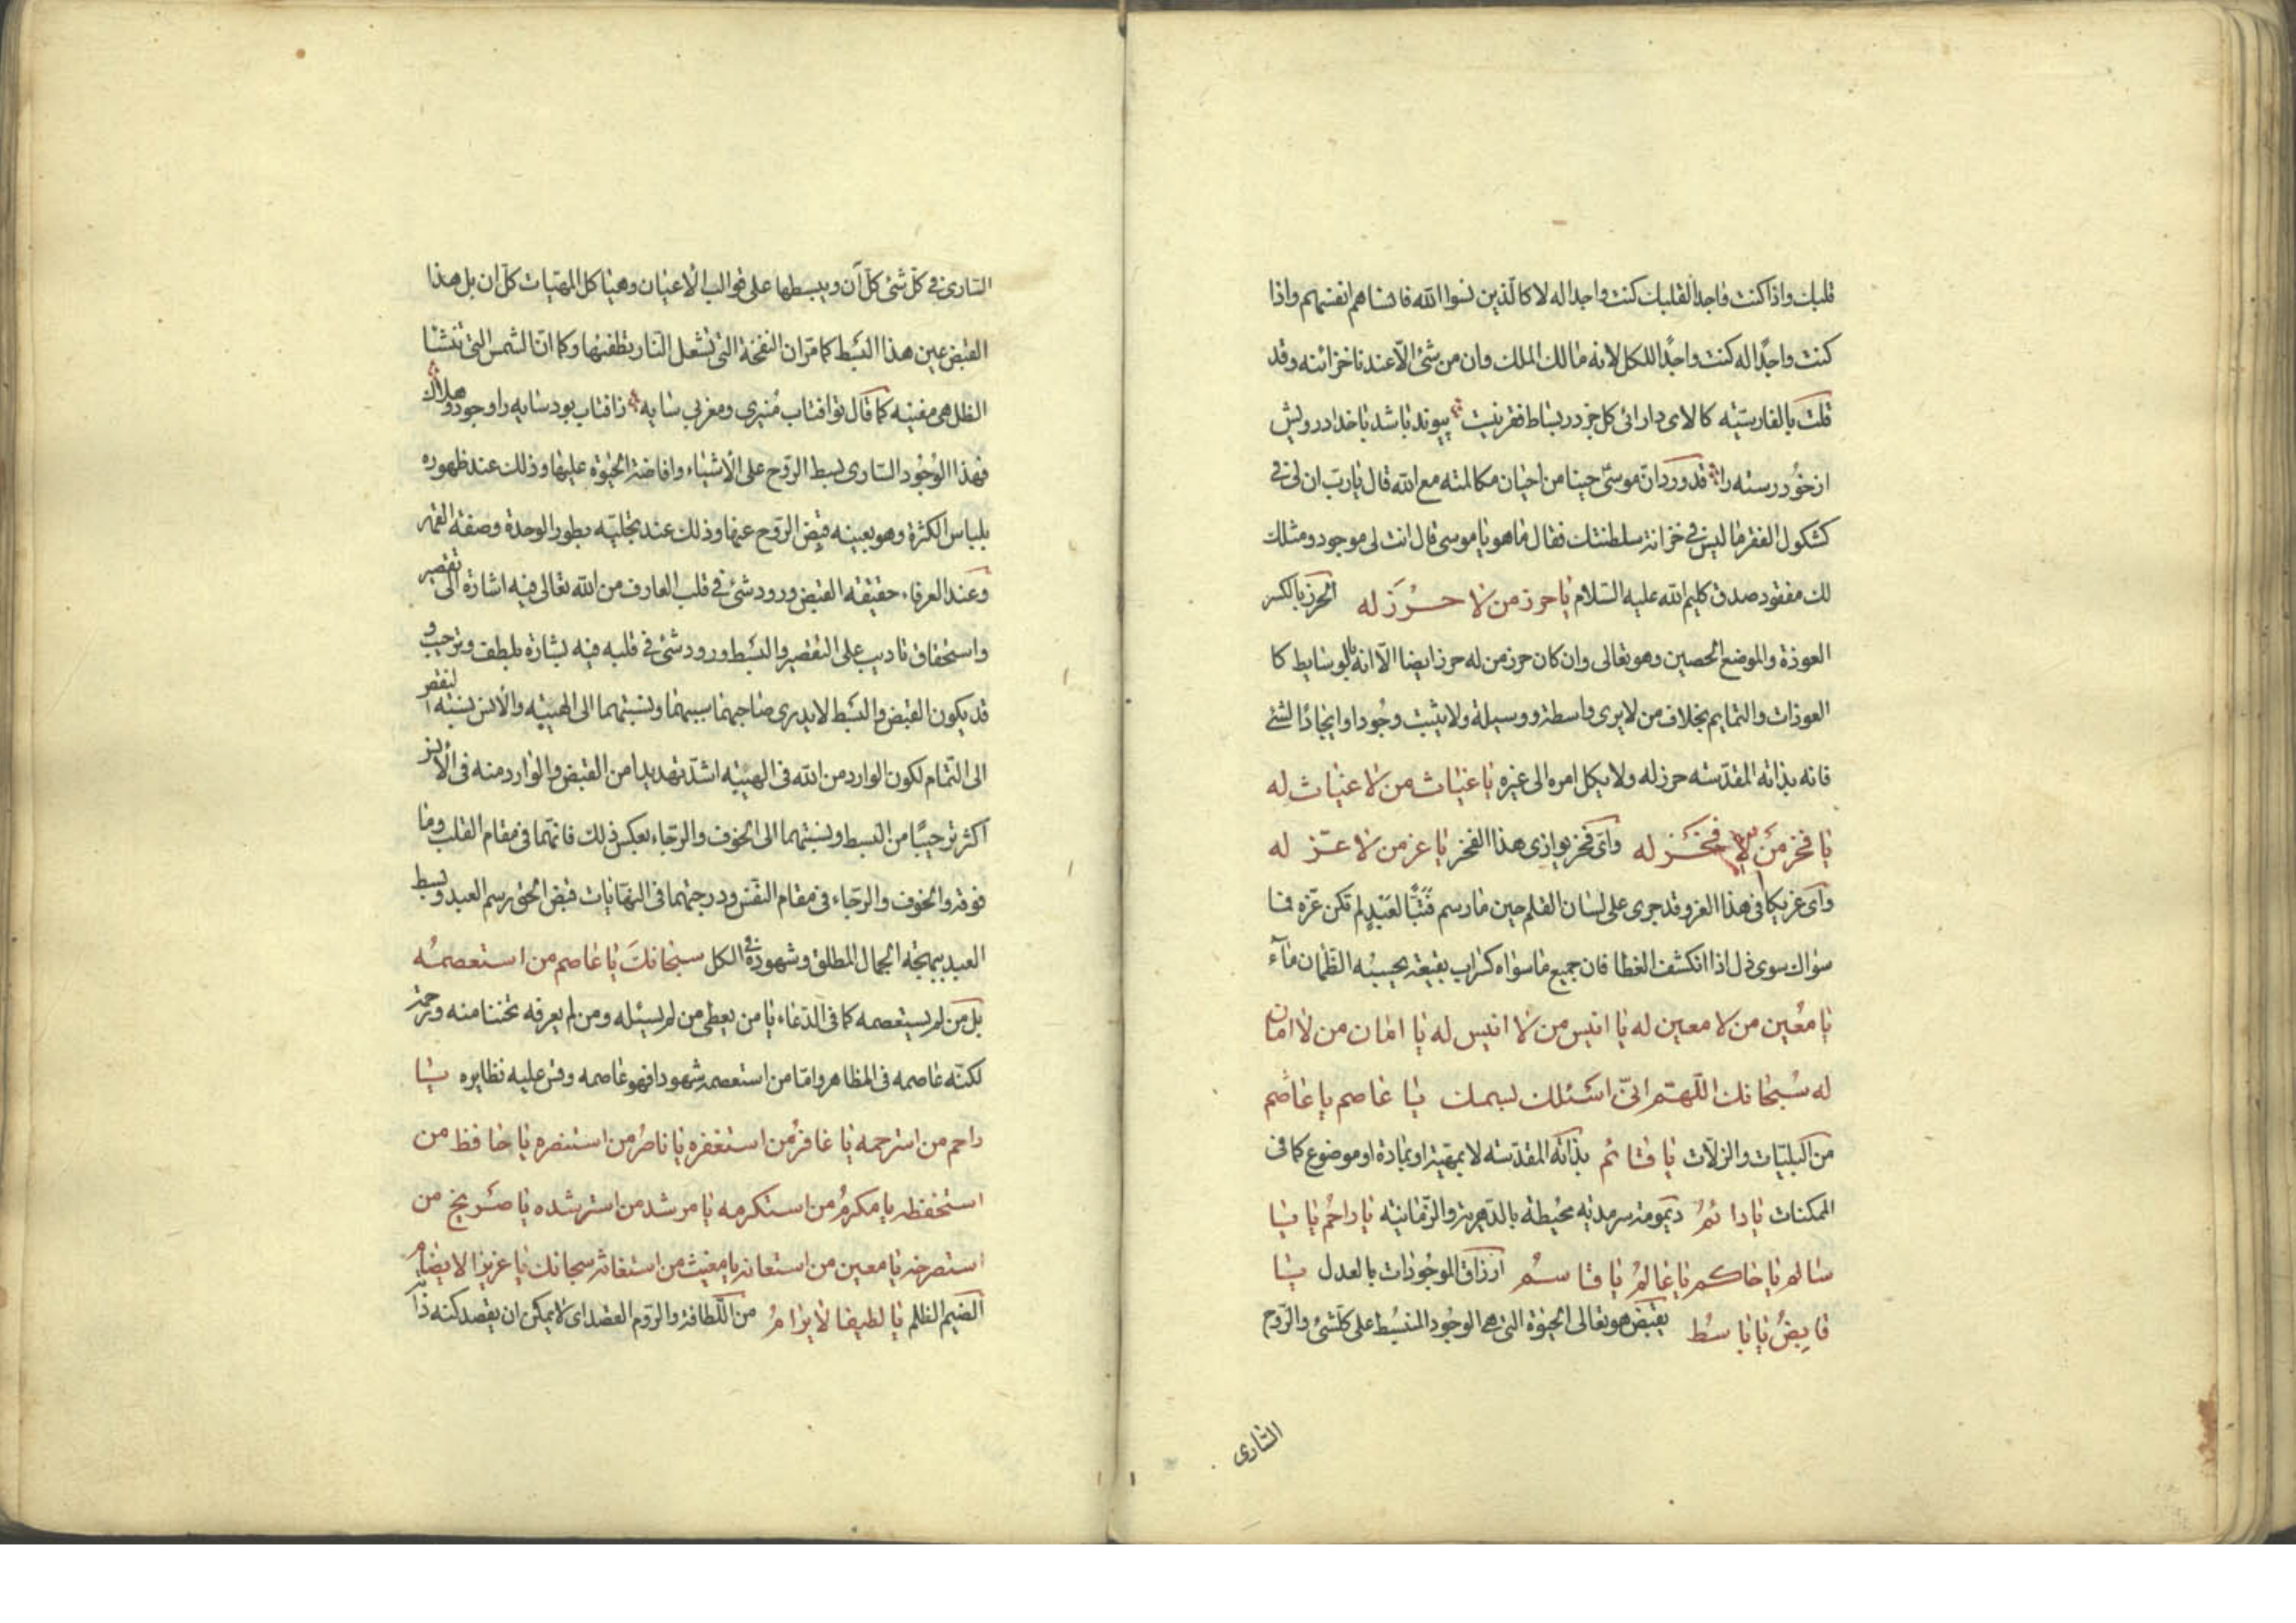 قلبك واذا كنت فاجدا لقلبك كنت واجدا له لا كالذين نسوا الله فانساهم انفسهم واذا
كنت واجدًا له كنت واجدًا للكل لانه مالك الملك وان من شئ الا عندنا خزائنه وقد
قلت بالفارسيّه كالای دارائی کل جز در بساط فقر نیست پیوند باشد باخدا درویش
از خود رسته را قد ورد ان موسى حينا من احيان مكالمته مع الله قال يا رب ان لى فى
كشكول الفقر ما ليس فى خزانة سلطنتك فقال ما هو يا موسى قال انت لى موجود ومثلك
لك مفقود صدق كليم الله عليه السّلام يا حرز من لا حرز له الحرز بالكسر
العوذة والموضع الحصين وهو تعالى وان كان حرز من له حرز ايضا الّا انه بالوسايط كا
العوذات والتمايم بخلاف من لا يرى واسطة ووسيلة ولا يثبت وجُودا وايجادًا لشئ
فانه بذاته المقدّسه حرز له ولا يكل امره الى غيره يا غياث من لا غياث له
يا فخر من لا فخر له واىّ فخر يوازى هذا الفخر يا عز من لا عزّ له
واى عز يكافى هذا العز وقد جرى على لسان القلم حين ما رسم فتبًّا لعبد لم تكن عزّه فنا
سواك سوى ذل اذا انكشف الغطا فان جميع ما سواه كسراب بقيعة يحسبه الظمان ماء
يا مُعين من لا معين له يا انيس من لا انيس له يا امان من لا امان
له سُبحانك اللّهمّ انّى اسئلك بسمك يا عاصم يا عاصم
من البليّات والزلّات يا قائم بذاته المقدّسه لا بمهيّة او بمادة او موضوع كما فى
الممكنات يا دائم ديمومة سرمديه محيطة بالدّهرية والزّمانيّه يا راحم يا يا
سالم يا حاكم يا عالمُ يا قاسمُ ارزاق الموجودات بالعدل يا
قابِضُ يا باسطُ يقبض هو تعالى الحيوة التى هى الوجُود المنبسُط على كلّشئ والرّوح
السّارى
السّارى فى كلّ شئ كلّ آن ويبسطها على قوالب الأعيان وهينا كل المهيّات كلّ ان بل هذا
القبض عين هذا البسط كما مرّ ان النفخة التى تشعل النّار تطفئها وكما انّ الشمس التى تنشئ
الظل هى مفنيه كما قال تو افتاب مُنیری ومغربی سایه زافتاب بود سایه را وجود وهلاك
فهذا الوُجُود السّارى بسط الروّح على الأشياء وافاضة الحيوة عليها وذلك عند ظهوره
بلباس الكثرة وهو بعينه قبض الرّوح عنها وذلك عند تجلّيه بطور الوحدة وصفة القهر
وعند العرفاء حقيقه القبض ورود شئ فى قلب العارف من الله تعالى فيه اشارة الى تقصير
واستحقاق تاديب على التقصير والبسط ورود شئ فى قلبه فيه بشارة بلطف وترحيب و
قد يكون القبض والبسط لا يدرى صاحبهما سببهما ونسبتهما الى الهيبه والأنس نسبه النقص
الى التّمام لكون الوارد من الله فى الهيبه اشدّ تهديدا من القبض والوارد منه فى الأنس
اكثر ترحيبًا من البسط ونسبتهما الى الخوف والرجاء بعكس ذلك فانّهما فى مقام القلب وما
فوقه والخوف والرّجاء فى مقام النفس ودرجتهما فى النهايات قبض الحق رسم العبد وبسط
العبد ببهجة الجمال المطلق وشهوده فى الكل سبحانك يا عاصم من استعصمُه
بل من لم يستعصمه كما فى الدّعاء يا من يعطى من لم يسئله ومن لم يعرفه تحننا منه ورحمة
لكنّه عاصمه فى المظاهر وامّا من استعصمه شهودا فهو عاصمه وقس عليه نظايره يا
راحم من استرحمه يا غافرُ من استغفره يا ناصرُ من استنصره يا حافظ من
استحفظه يا مكرمُ من استكرمه يا مرشد من استرشده يا صريخ من
استصرخه يا معين من استعانه يا مغيث من استغاثه سبحانك يا عزيزا لا يضام
الضيم الظلم يا لطيفا لا يرامُ من اللّطافة والرّوم القصد اى لا يمكن ان يقصد كنه ذاته